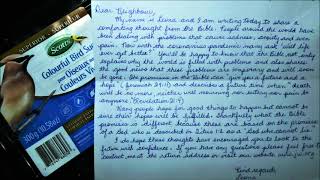 SUPERIOR · SUPERIOR
Scotts
Colourful Bird Su
pour Oiseaux
Couleurs Viv
Dear Neighbour,
My name is Leena and I am writing today to share a
comforting thought from the Bible. People around the world have
been dealing with problems that cause sadness, anxiety and even
pain. Now with the coronavirus pandemic many ask "will life
ever get better?" You'd be happy to know that the Bible not only
explains why the world is filled with problems and also shares
the good news that these problems are temporary and will soon
be gone. The promises in the Bible can "give you a future and a
hope" (Jeremiah 29:11) and describes a future time when "death
will be no more, neither will mourning nor outcry nor pain
anymore." (Revelation 21:4)
Many people hope for good things to happen but cannot be
sure their hopes will be fulfilled. Thankfully what the Bible
promises is different because these are based on the promises
of a God who is described in Titus 1:2 as "God who cannot lie."
I do hope these thoughts have encouraged you to look to the
future with confidence. If you have any questions please feel free to
contact me at the return address or visit our website www.jw.org
Kind regards,